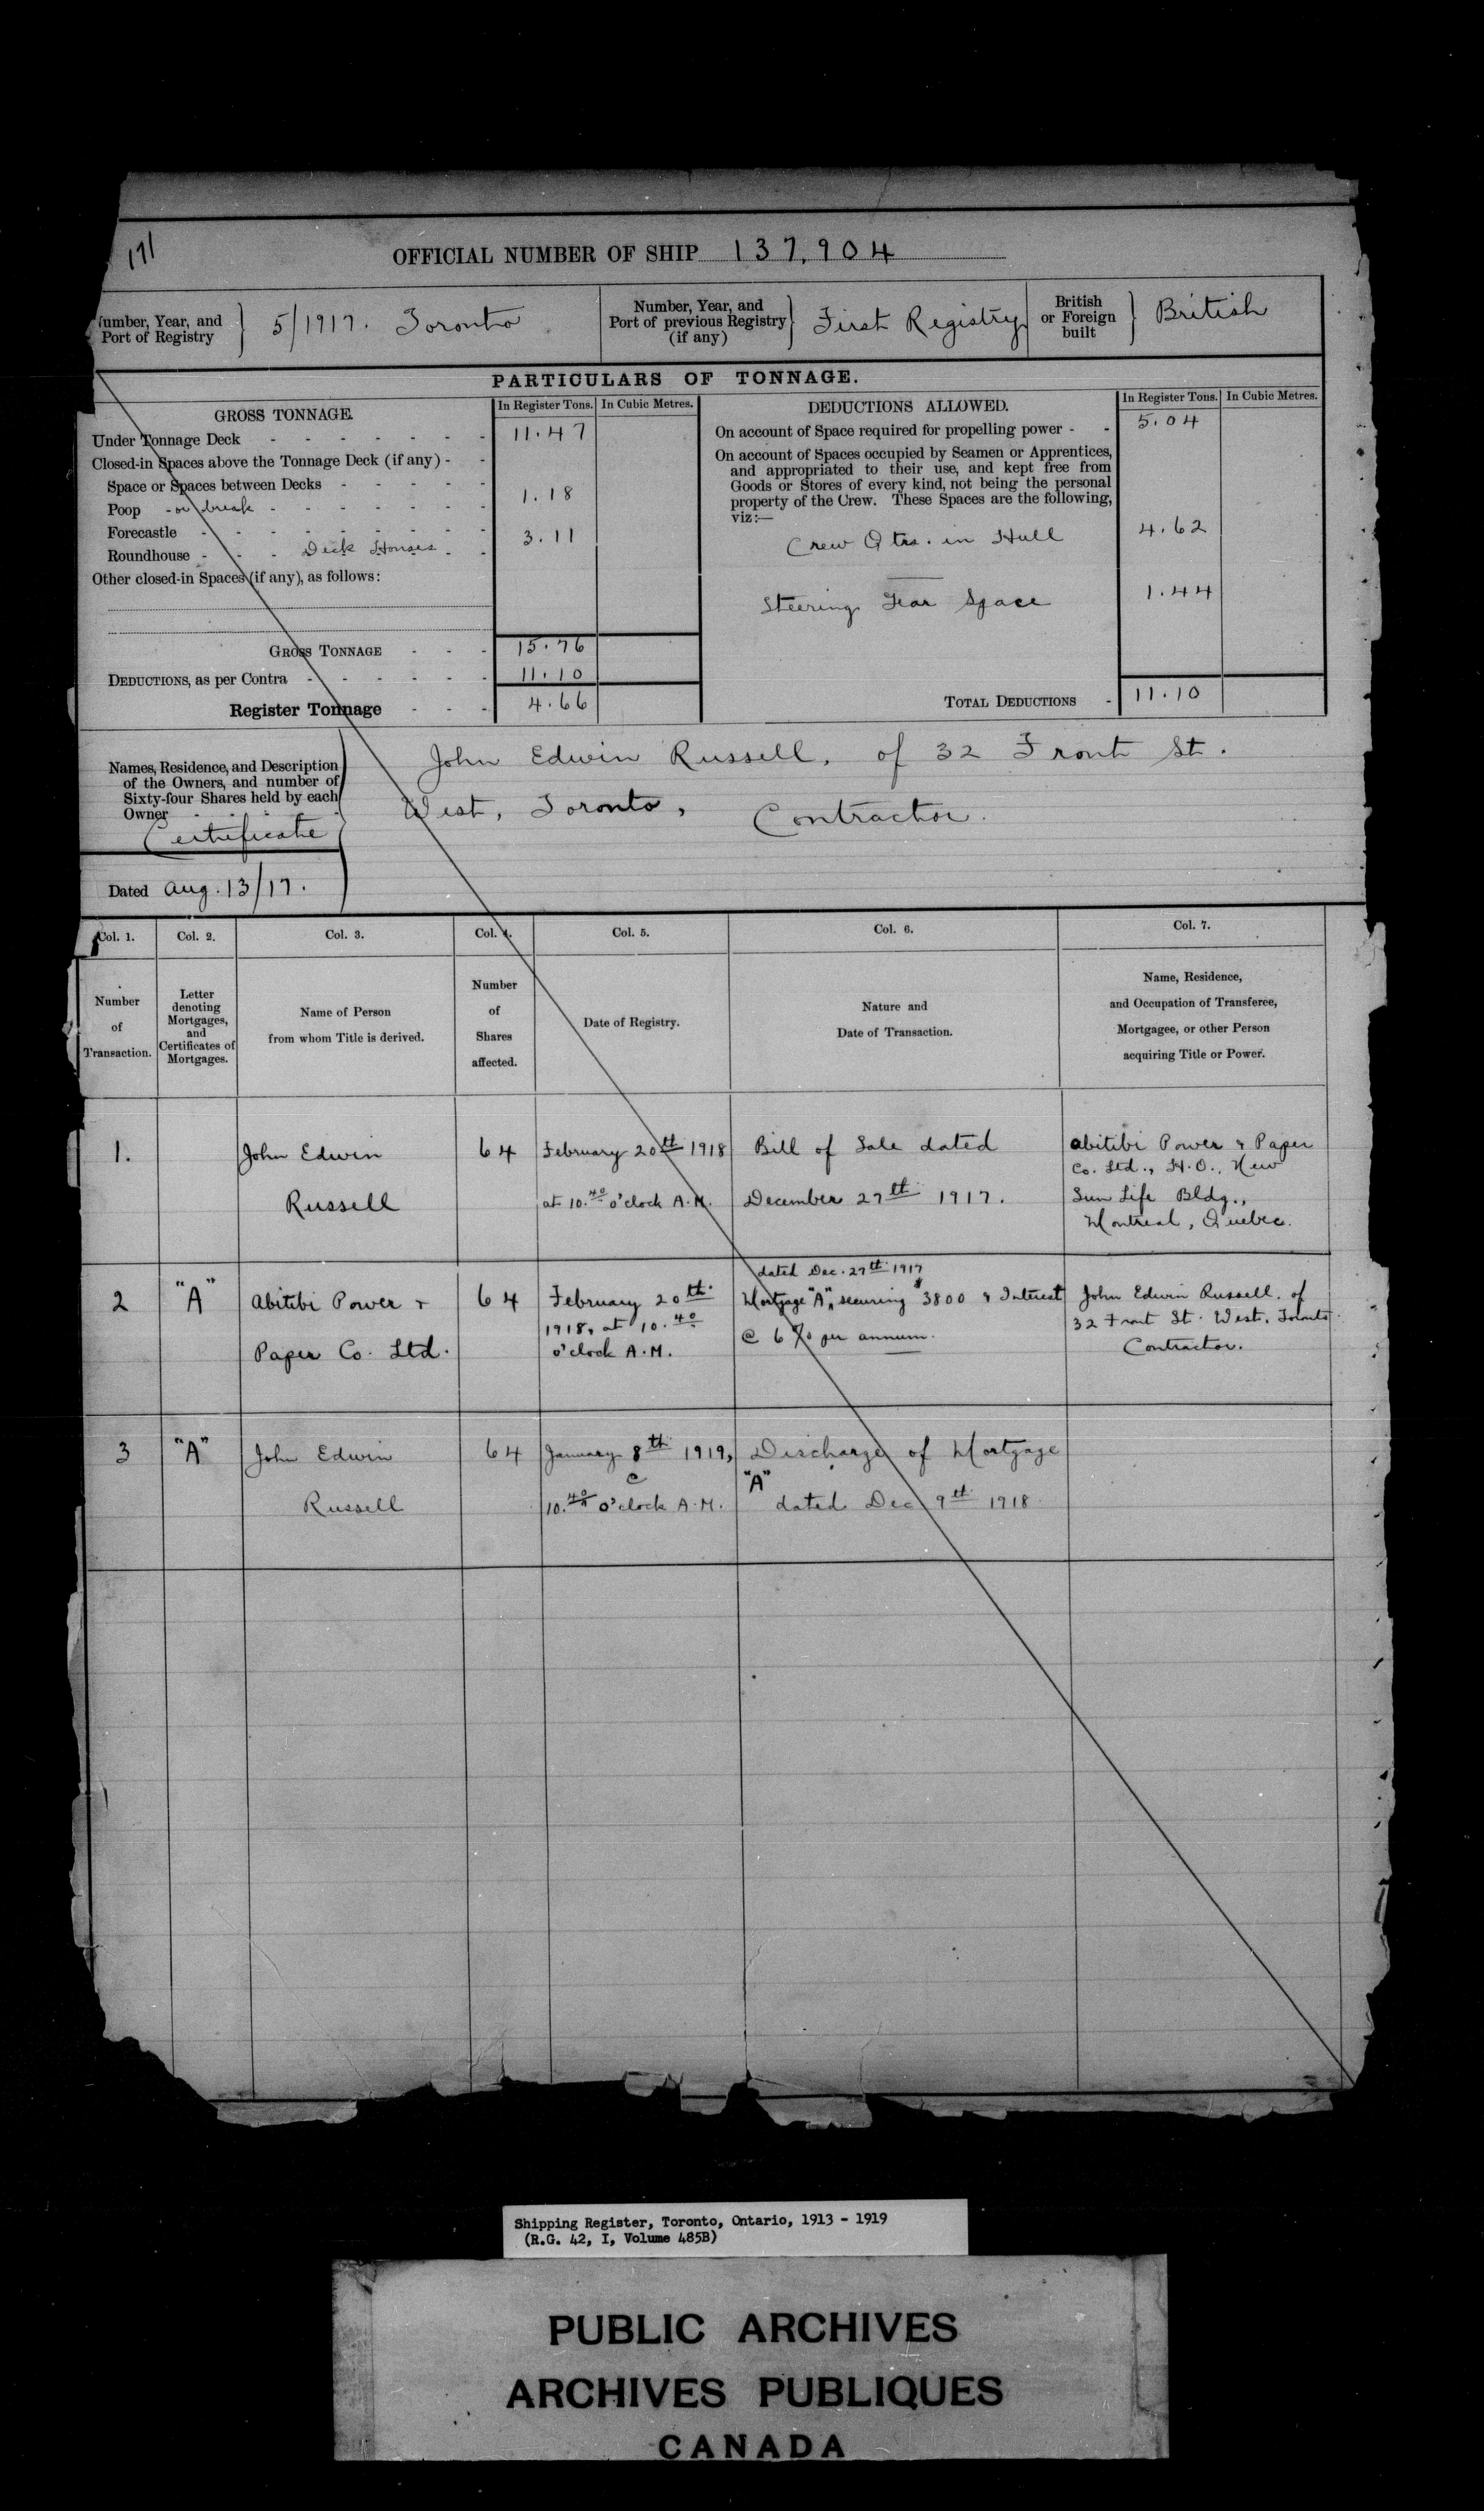 171
OFFICIAL NUMBER OF SHIP 137,904
umber, Year, and Port of Registry } 5/1917. Toronto
Number, Year, and Port of previous Registry (if any) } First Registry
British or Foreign built } British
PARTICULARS OF TONNAGE.
GROSS TONNAGE.
In Register Tons. In Cubic Metres.
Under Tonnage Deck 11.47
Closed-in Spaces above the Tonnage Deck (if any)
Space or Spaces between Decks
Poop or break 1.18
Forecastle
Roundhouse Deck Houses 3.11
Other closed-in Spaces (if any), as follows:
GROSS TONNAGE 15.76
DEDUCTIONS, as per Contra 11.10
Register Tonnage 4.66
DEDUCTIONS ALLOWED.
In Register Tons. In Cubic Metres.
On account of Space required for propelling power 5.04
On account of Spaces occupied by Seamen or Apprentices,
and appropriated to their use, and kept free from
Goods or Stores of every kind, not being the personal
property of the Crew. These Spaces are the following,
viz:—
Crew Qtrs. in Hull 4.62
Steering Gear Space 1.44
TOTAL DEDUCTIONS 11.10
Names, Residence, and Description
of the Owners, and number of
Sixty-four Shares held by each
Owner
Certificate
Dated Aug. 13/17.
John Edwin Russell, of 32 Front St.
West, Toronto, Contractor.
Col. 1. Col. 2. Col. 3. Col. 4. Col. 5. Col. 6. Col. 7.
Number
of
Transaction.
Letter
denoting
Mortgages,
and
Certificates of
Mortgages.
Name of Person
from whom Title is derived.
Number
of
Shares
affected.
Date of Registry.
Nature and
Date of Transaction.
Name, Residence,
and Occupation of Transferee,
Mortgagee, or other Person
acquiring Title or Power.
1.
John Edwin
Russell
64
February 20th 1918
at 10.40 o'clock A.M.
Bill of Sale dated
December 27th 1917.
Abitibi Power & Paper
Co. Ltd., H.O., New
Sun Life Bldg.,
Montreal, Quebec.
2
"A"
Abitibi Power &
Paper Co. Ltd.
64
February 20th
1918, at 10.40
o'clock A.M.
dated Dec. 27th 1917
Mortgage "A", securing $3800 & Interest
@ 6% per annum.
John Edwin Russell, of
32 Front St. West, Toronto
Contractor.
3
"A"
John Edwin
Russell
64
January 8th 1919,
@
10.40 o'clock A.M.
Discharge of Mortgage
"A"
dated Dec 9th 1918
Shipping Register, Toronto, Ontario, 1913 - 1919
(R.G. 42, I, Volume 485B)
PUBLIC ARCHIVES
ARCHIVES PUBLIQUES
CANADA